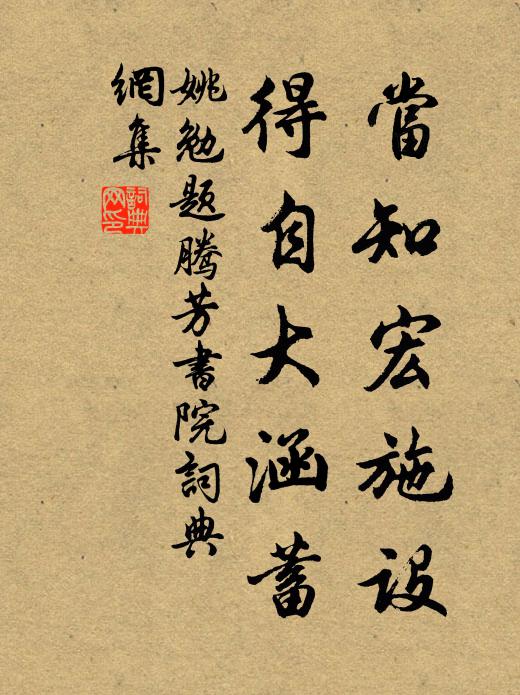 當知宏施設
得自大涵蓄
姚勉題騰芳書院詞典
網集
詞典
網印